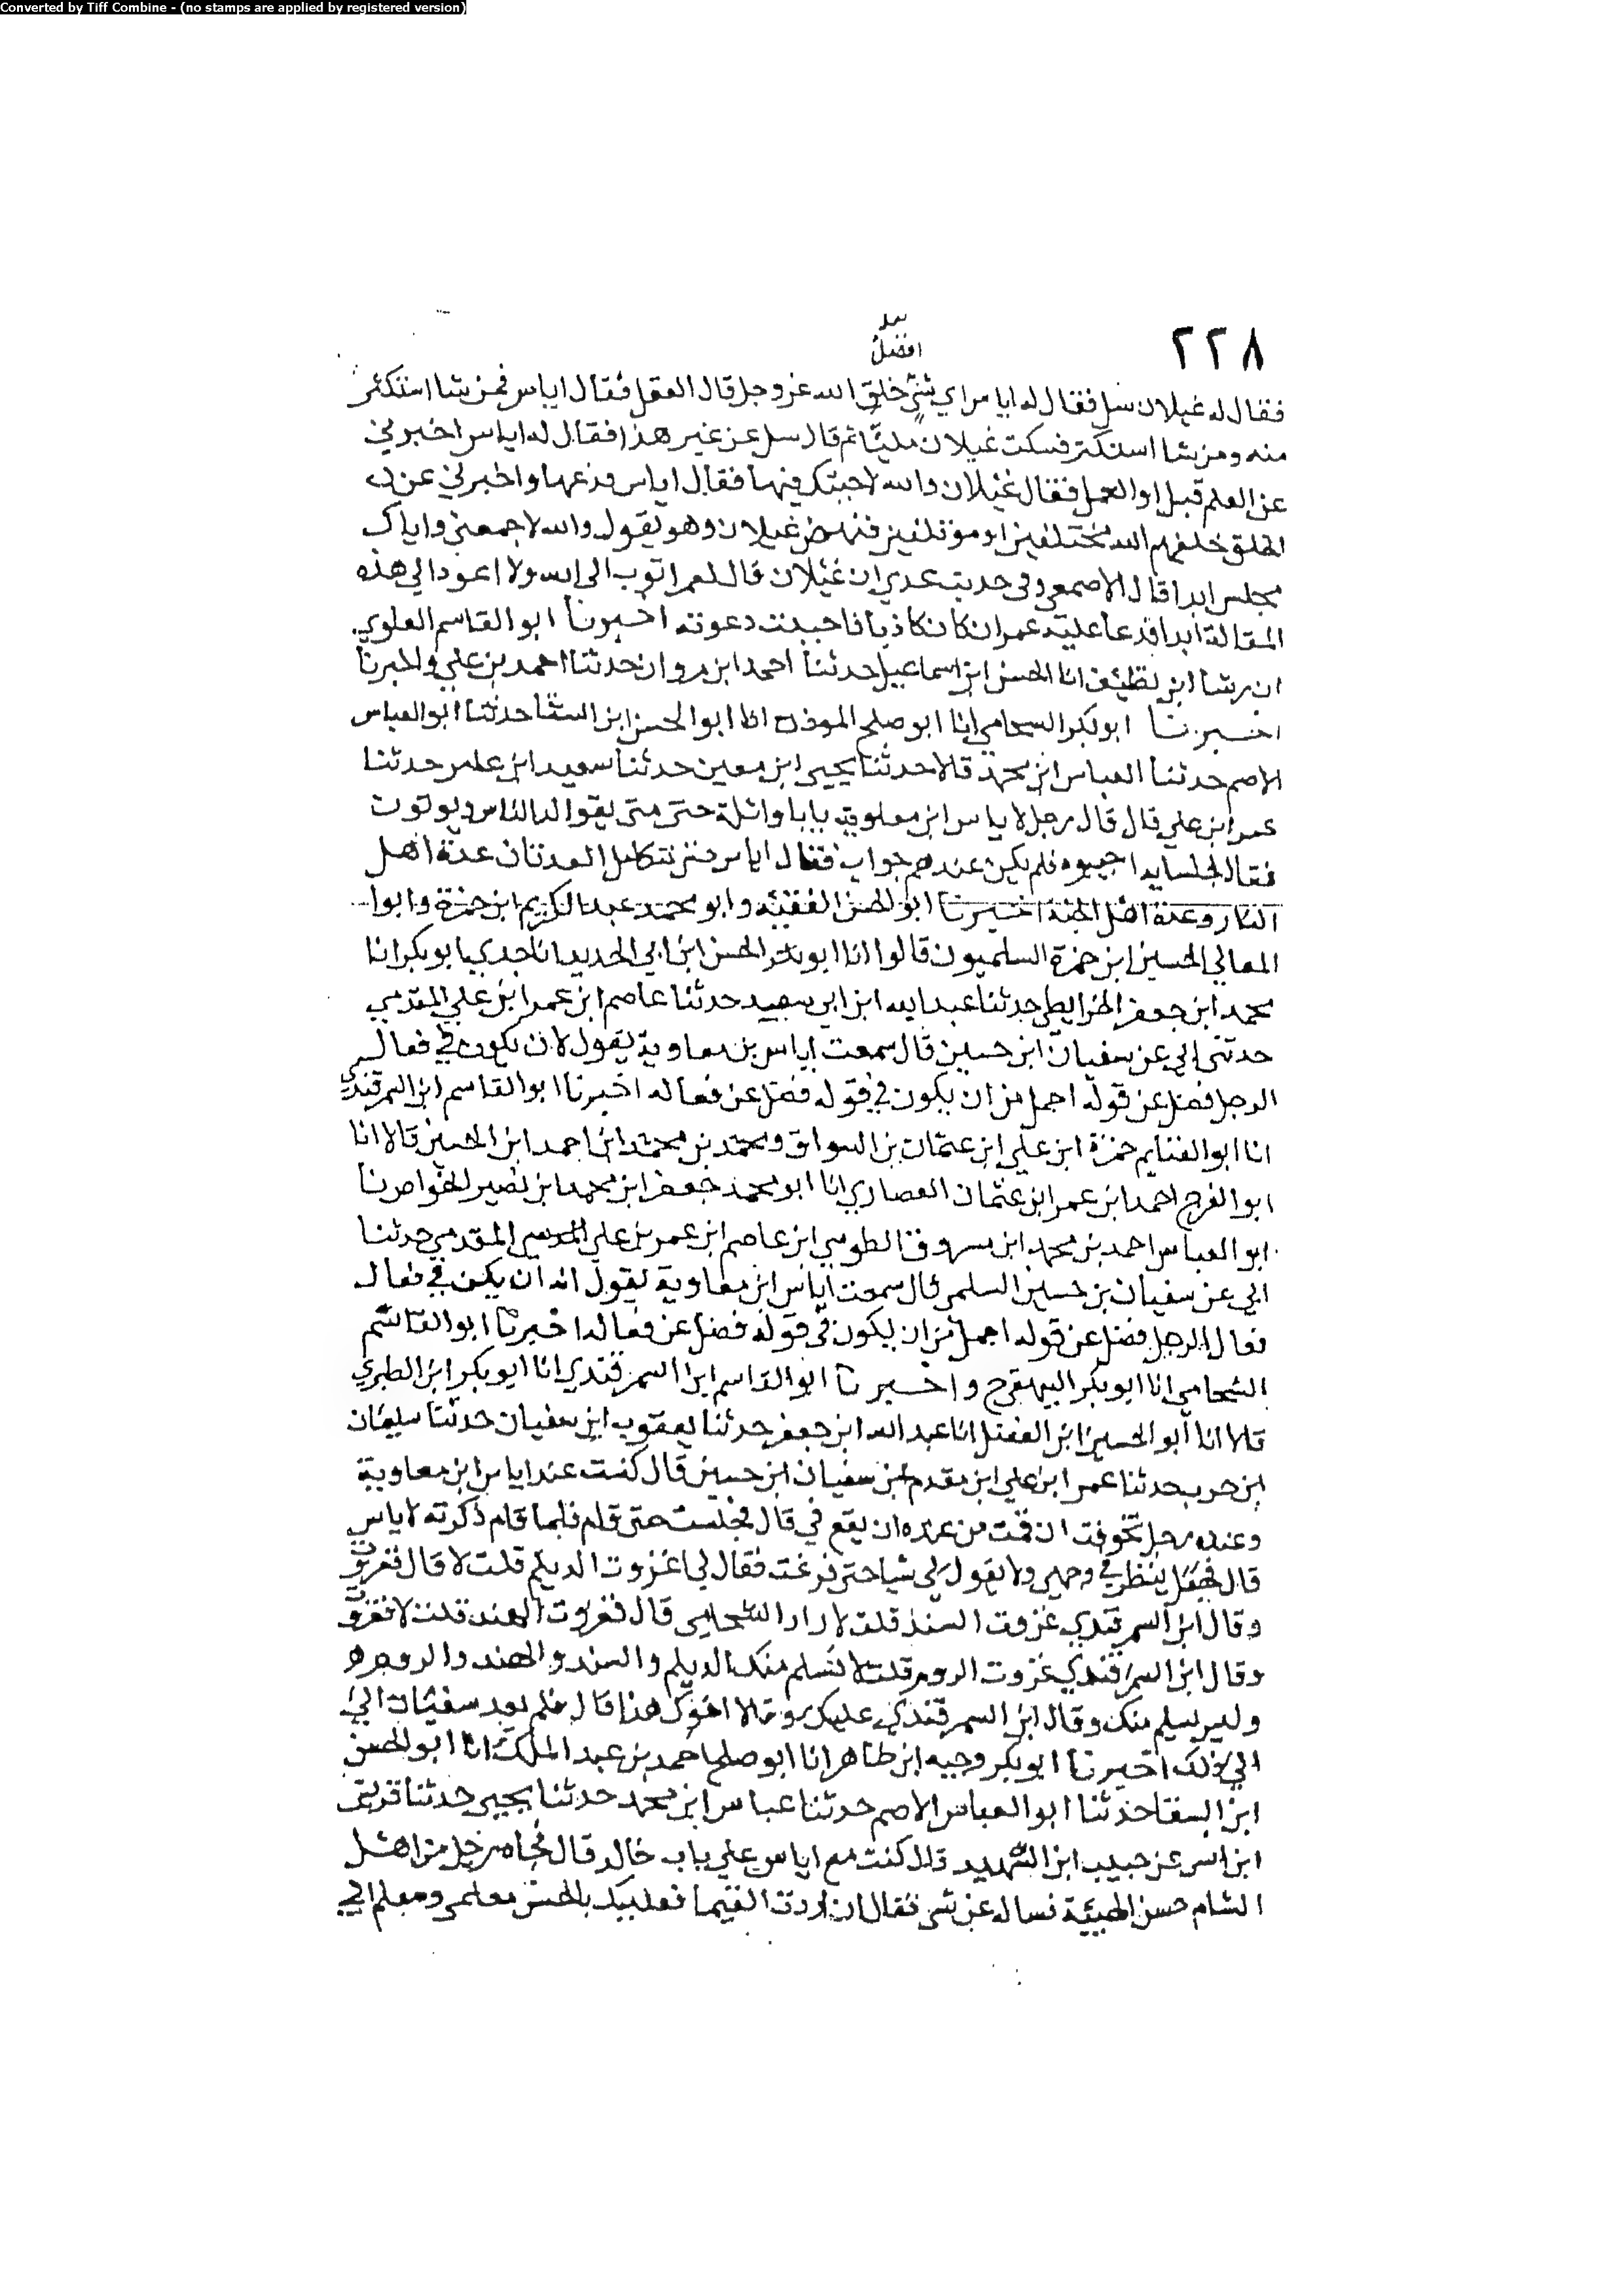 Converted by Tiff Combine - (no stamps are applied by registered version)
٢٢٨
افضل
فقال له غيلان سل فقال له اياس اي شئ خلق الله عز وجل قال العقل فقال اياس فمن شا استكثر
منه ومن شا استكثر فسكت غيلان مليا ثم قال سل عن غير هذا فقال له اياس اخبرني
عن العلم قبل او العمل فقال غيلان والله لا جبتك فيها فقال اياس فدعها واخبرني عن
الخلق خلقهم الله مختلفين او موتلفين فنهض غيلان وهو يقول والله لا جمعني واياك
مجلس ابدا قال الاصمعي وفي حديث عدي ان غيلان قال لعمر اتوب الى الله ولا اعود الى هذه
المقالة ابدا فدعا عليه عمران كان كاذبا فاجيبت دعوته اخبرنا ابو القاسم العلوي
ان رشا ابن نظيف انا الحسن ابن اسماعيل حدثنا احمد ابن مروان حدثنا احمد بن علي واخبرنا
اخبرنا ابو بكر الشحامي انا ابو صلح الموذن انا ابو الحسن ابن السقا حدثنا ابو العباس
الاصم حدثنا العباس ابن محمد قالا حدثنا يحيى ابن معين حدثنا سعيد ابن عامر حدثنا
عمر ابن علي قال قال رجل لاياس ابن معاوية يابا واثلة حتى متى يتوالد الناس ويموتون
فقال لجلسايه اجيبوه فلم يكن عندهم جواب فقال اياس حتى تتكامل العدتان عدة اهل
النار وعدة اهل الجنة اخبرنا ابو الحسن الفقيه وابو محمد عبد الكريم ابن حمزة وابوا
المعالي الحسين ابن حمزة السلميون قالوا انا ابو الحسن ابن ابي الحديد انا جدي ابو بكر انا
محمد ابن جعفر الخرايطي حدثنا عبد الله ابن ابي سعيد حدثنا عاصم ابن عمر ابن علي المقدمي
حدثني ابي عن سفيان ابن حسين قال سمعت اياس بن معاوية يقول لان يكون في فعال
الرجل فضل عن قوله اجمل من ان يكون في قوله فضل عن فعاله اخبرنا ابو القاسم ابن السمرقندي
انا ابو الغنايم حمزة ابن علي ابن عثمان بن السواق ومحمد بن محمد ابن احمد ابن الحسين قالا انا
ابو الفرج احمد ابن عمر ابن عثمان الغضاري انا ابو محمد جعفر ابن محمد ابن نصير الخواص نا
ابو العباس احمد بن محمد ابن مسروق الطوسي ابن عاصم ابن عمر بن علي المقدمي حدثنا
ابي عن سفيان بن حسين السلمي قال سمعت اياس ابن معاوية يقول انه ان يكن في فعال
فعال الرجل فضل عن قوله اجمل من ان يكون في قوله فضل عن فعاله اخبرنا ابو القاسم
الشحامي انا ابو بكر البيهقي ح واخبرنا ابو القاسم ابن السمرقندي انا ابو بكر ابن الطبري
قالا انا ابو الحسين ابن الفضل انا عبد الله ابن جعفر حدثنا يعقوب ابن سفيان حدثنا سليمان
بن حرب حدثنا عمر ابن علي ابن مقدم عن سفيان ابن حسين قال كنت عند اياس ابن معاوية
وعنده رجل تخوفت ان قمت من عنده ان يقع في قال فجلست حتى قام فلما قام ذكرته لاياس
قال فجعل ينظر في وجهي ولا يقول لي شيا حتى فرغت فقال لي اغزوت الديلم قلت لا قال فغزوت
وقال ابن السمرقندي غزوت السند قلت لا زاد الشحامي قال فغزوت الهند قلت لا فغزوت
وقال ابن السمرقندي غزوت الروم قلت لا تسلم منك الديلم والسند والهند والروم
وليس يسلم منك وقال ابن السمرقندي عليك وقالا اخوك هذا قال فلم يعد سفيان الى
الى ذلك اخبرنا ابو بكر وجيه ابن طاهر انا ابو صلح احمد بن عبد الملك انا ابو الحسن
ابن السقا حدثنا ابو العباس الاصم حدثنا عباس ابن محمد حدثنا يحيى حدثنا قريش
ابن انس عن حبيب ابن الشهيد قال كنت مع اياس علي باب خالد قال فجاه رجل من اهل
الشام حسن الهيئة فساله عن شي فقال ان اردت الفتيا فعليك بالحسن معلمي ومعلم ابي